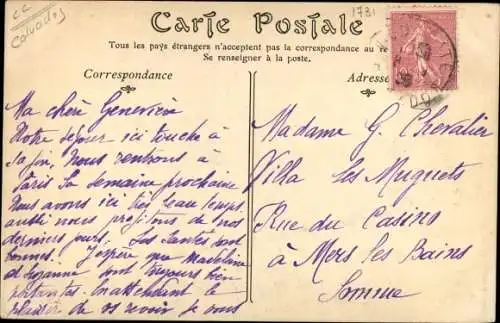 CC
Calvados
Carte Postale
1731
Tous les pays étrangers n'acceptent pas la correspondance au
Se renseigner à la poste.
Correspondance
Adresse
Ma chère Geneviève
Notre séjour ici touche à
sa fin, nous rentrons à
Paris la semaine prochaine
Nous avons ici très beau temps
aussi nous profitons de nos
derniers jours. Les santés sont
bonnes. J'espère que Madeleine
et Suzanne sont toujours bien
portantes. En attendant le
plaisir de vs revoir je vous
Madame G. Chevalier
Villa les Muguets
Rue du Casino
à Mers les Bains
Somme